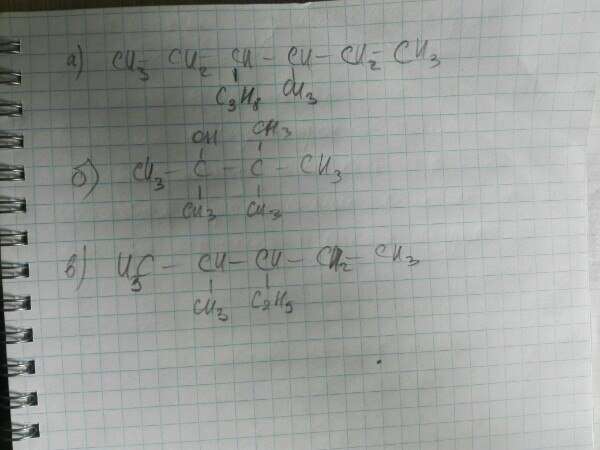 а) CH3 - CH2 - CH - CH - CH2 - CH3
C3H8 CH3
OH CH3
б) CH3 - C - C - CH3
CH3 CH3
в) H3C - CH - CH - CH2 - CH3
CH3 C2H5